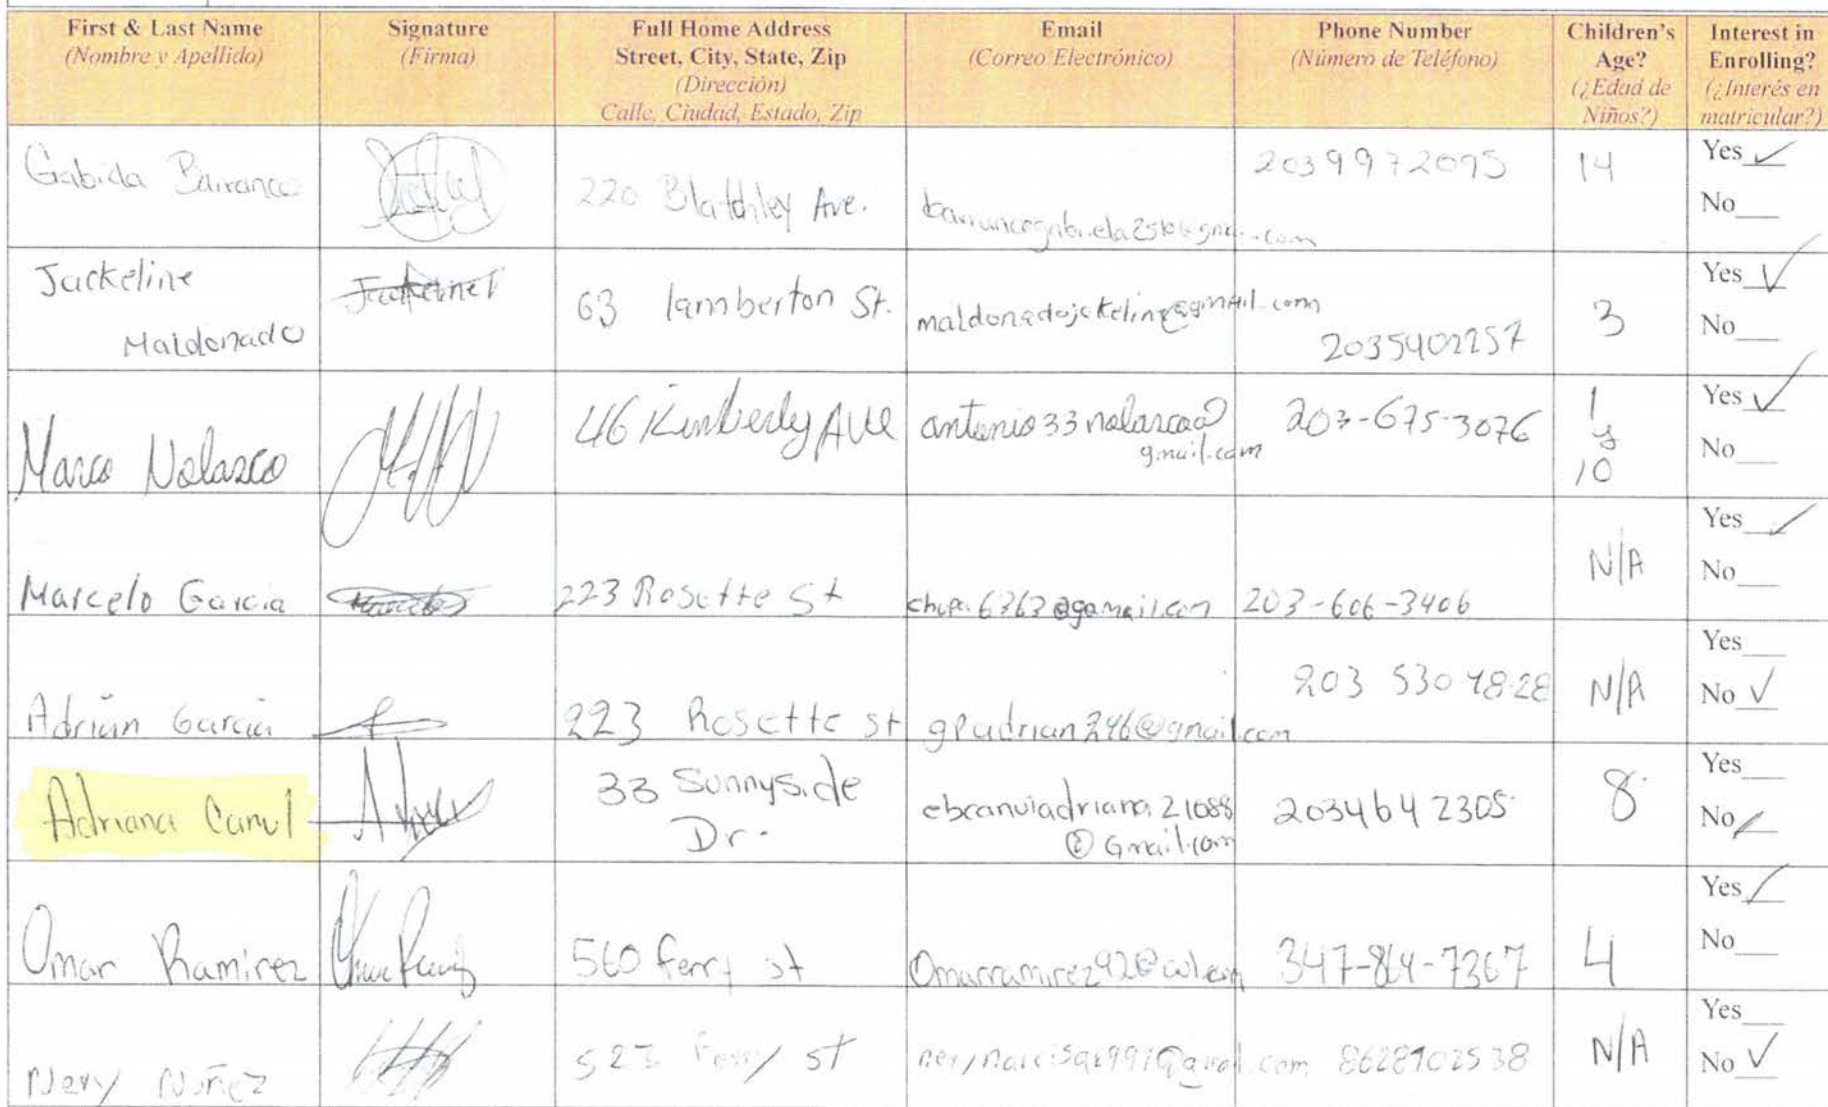 First & Last Name
(Nombre y Apellido)
Signature
(Firma)
Full Home Address
Street, City, State, Zip
(Dirección)
Calle, Ciudad, Estado, Zip
Email
(Correo Electrónico)
Phone Number
(Número de Teléfono)
Children's
Age?
(¿Edad de
Niños?)
Interest in
Enrolling?
(¿Interés en
matricular?)
220 Blatchley Ave.
2039972095
14
Yes ✓
No
Jackeline
Maldonado
63 lamberton St.
maldonadojakeline@gmail.com
2035402257
3
Yes ✓
No
Marco Nolasco
46 Kimberly AVE
antonio33nolasco@
gmail.com
203-675-3076
1
y
10
Yes ✓
No
Marcelo Garcia
223 Rosette St
203-606-3406
N/A
Yes ✓
No
Adrián Garcia
223 Rosette st
gpadrian246@gmail.com
203 530 4828
N/A
Yes
No ✓
Adriana Canul
33 Sunnyside
Dr.
ebcanuladriana21088
@Gmail.com
2034642305
8
Yes
No ✓
Omar Ramirez
Omar Ramirez
560 ferry st
Omarramirez92@aol.com
347-864-7367
4
Yes ✓
No
Nery Nuñez
523 Ferry st
8628902538
N/A
Yes
No ✓